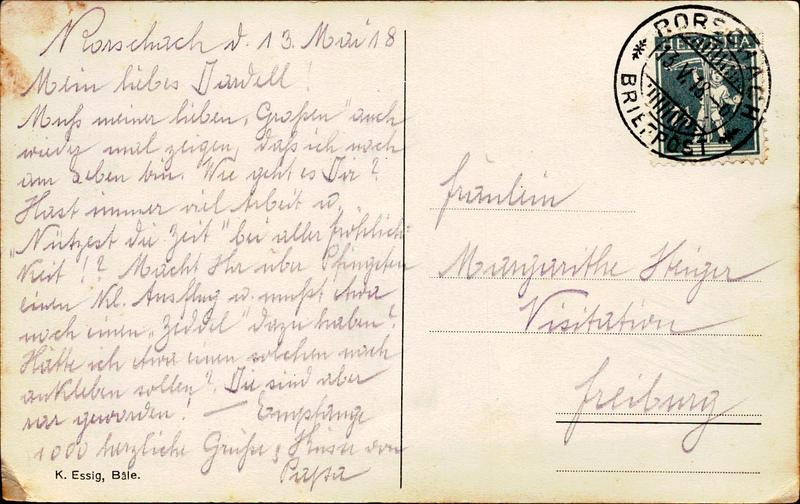 Rorschach d. 13. Mai 18
Mein liebes
Muß meiner lieben „Großen" auch
wieder mal zeigen, daß ich noch
am Leben bin. Wie geht es Dir?
Hast immer viel Arbeit u.
„Nützest die Zeit" bei aller Fröhlich=
keit!? Macht Ihr über Pfingsten
einen kl. Ausflug u. mußt etwa
noch einen „Zeddel" dazu haben?
Hätte ich etwa einen solchen noch
aufkleben sollen? Die sind aber
rar geworden! — Empfange
1000 herzliche Grüße & Küsse von
Papa
K. Essig, Bâle.
RORSCHACH
BRIEFPOST
13.V.18
HELVETIA
Fräulein
Margarithe Heiger
Visitation
Freiburg